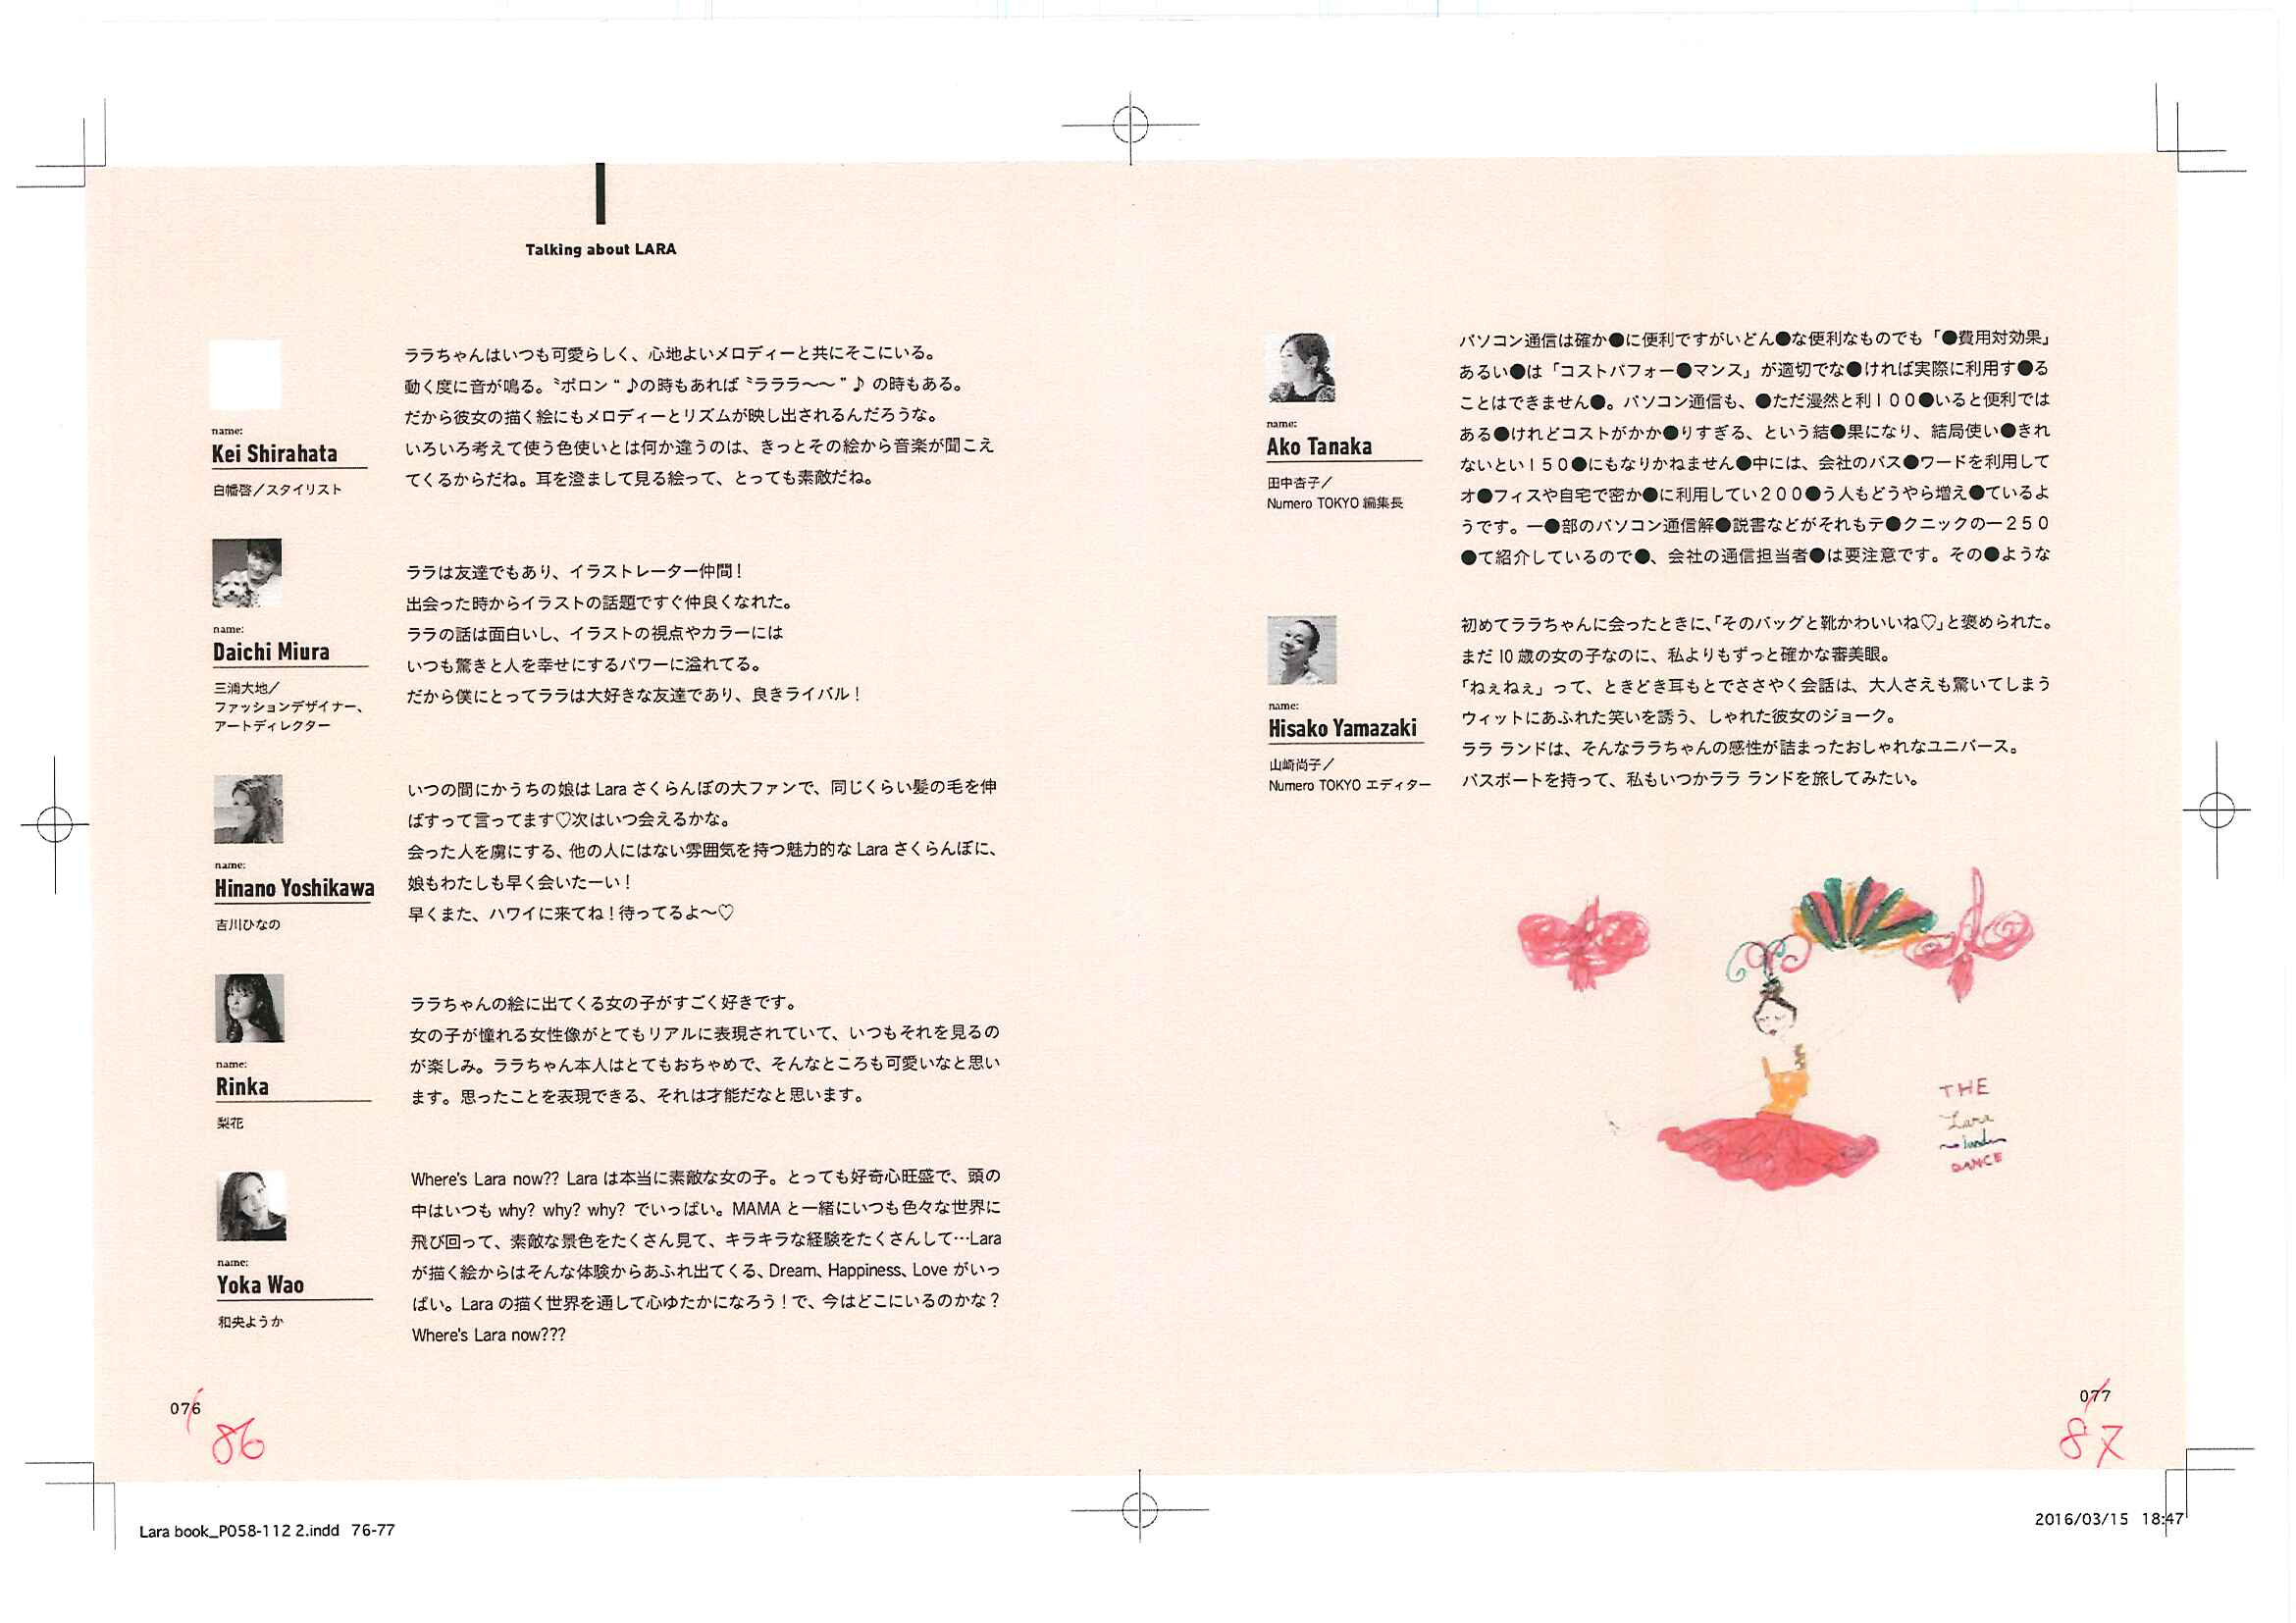 Talking about LARA
name:
Kei Shirahata
白幡啓／スタイリスト
ララちゃんはいつも可愛らしく、心地よいメロディーと共にそこにいる。
動く度に音が鳴る。〝ポロン “ ♪の時もあれば〝ラララ〜〜 ” ♪ の時もある。
だから彼女の描く絵にもメロディーとリズムが映し出されるんだろうな。
いろいろ考えて使う色使いとは何か違うのは、きっとその絵から音楽が聞こえ
てくるからだね。耳を澄まして見る絵って、とっても素敵だね。
name:
Daichi Miura
三浦大地／
ファッションデザイナー、
アートディレクター
ララは友達でもあり、イラストレーター仲間！
出会った時からイラストの話題ですぐ仲良くなれた。
ララの話は面白いし、イラストの視点やカラーには
いつも驚きと人を幸せにするパワーに溢れてる。
だから僕にとってララは大好きな友達であり、良きライバル！
name:
Hinano Yoshikawa
吉川ひなの
いつの間にかうちの娘は Lara さくらんぼの大ファンで、同じくらい髪の毛を伸
ばすって言ってます♡次はいつ会えるかな。
会った人を虜にする、他の人にはない雰囲気を持つ魅力的な Lara さくらんぼに、
娘もわたしも早く会いたーい！
早くまた、ハワイに来てね！待ってるよ〜♡
name:
Rinka
梨花
ララちゃんの絵に出てくる女の子がすごく好きです。
女の子が憧れる女性像がとてもリアルに表現されていて、いつもそれを見るの
が楽しみ。ララちゃん本人はとてもおちゃめで、そんなところも可愛いなと思い
ます。思ったことを表現できる、それは才能だなと思います。
name:
Yoka Wao
和央ようか
Where's Lara now?? Lara は本当に素敵な女の子。とっても好奇心旺盛で、頭の
中はいつも why? why? why? でいっぱい。MAMA と一緒にいつも色々な世界に
飛び回って、素敵な景色をたくさん見て、キラキラな経験をたくさんして…Lara
が描く絵からはそんな体験からあふれ出てくる、Dream、Happiness、Love がいっ
ぱい。Lara の描く世界を通して心ゆたかになろう！で、今はどこにいるのかな？
Where's Lara now???
076
86
name:
Ako Tanaka
田中杏子／
Numero TOKYO 編集長
パソコン通信は確か●に便利ですがいどん●な便利なものでも「●費用対効果」
あるい●は「コストパフォー●マンス」が適切でな●ければ実際に利用す●る
ことはできません●。パソコン通信も、●ただ漫然と利１００●いると便利では
ある●けれどコストがかか●りすぎる、という結●果になり、結局使い●きれ
ないとい１５０●にもなりかねません●中には、会社のパス●ワードを利用して
オ●フィスや自宅で密か●に利用してい２００●う人もどうやら増え●ているよ
うです。一●部のパソコン通信解●説書などがそれもテ●クニックの一２５０
●て紹介しているので●、会社の通信担当者●は要注意です。その●ような
name:
Hisako Yamazaki
山崎尚子／
Numero TOKYO エディター
初めてララちゃんに会ったときに、「そのバッグと靴かわいいね♡」と褒められた。
まだ 10 歳の女の子なのに、私よりもずっと確かな審美眼。
「ねぇねぇ」って、ときどき耳もとでささやく会話は、大人さえも驚いてしまう
ウィットにあふれた笑いを誘う、しゃれた彼女のジョーク。
ララ ランドは、そんなララちゃんの感性が詰まったおしゃれなユニバース。
パスポートを持って、私もいつかララ ランドを旅してみたい。
THE
Lara
land
DANCE
077
87
Lara book_P058-112 2.indd 76-77
2016/03/15 18:47